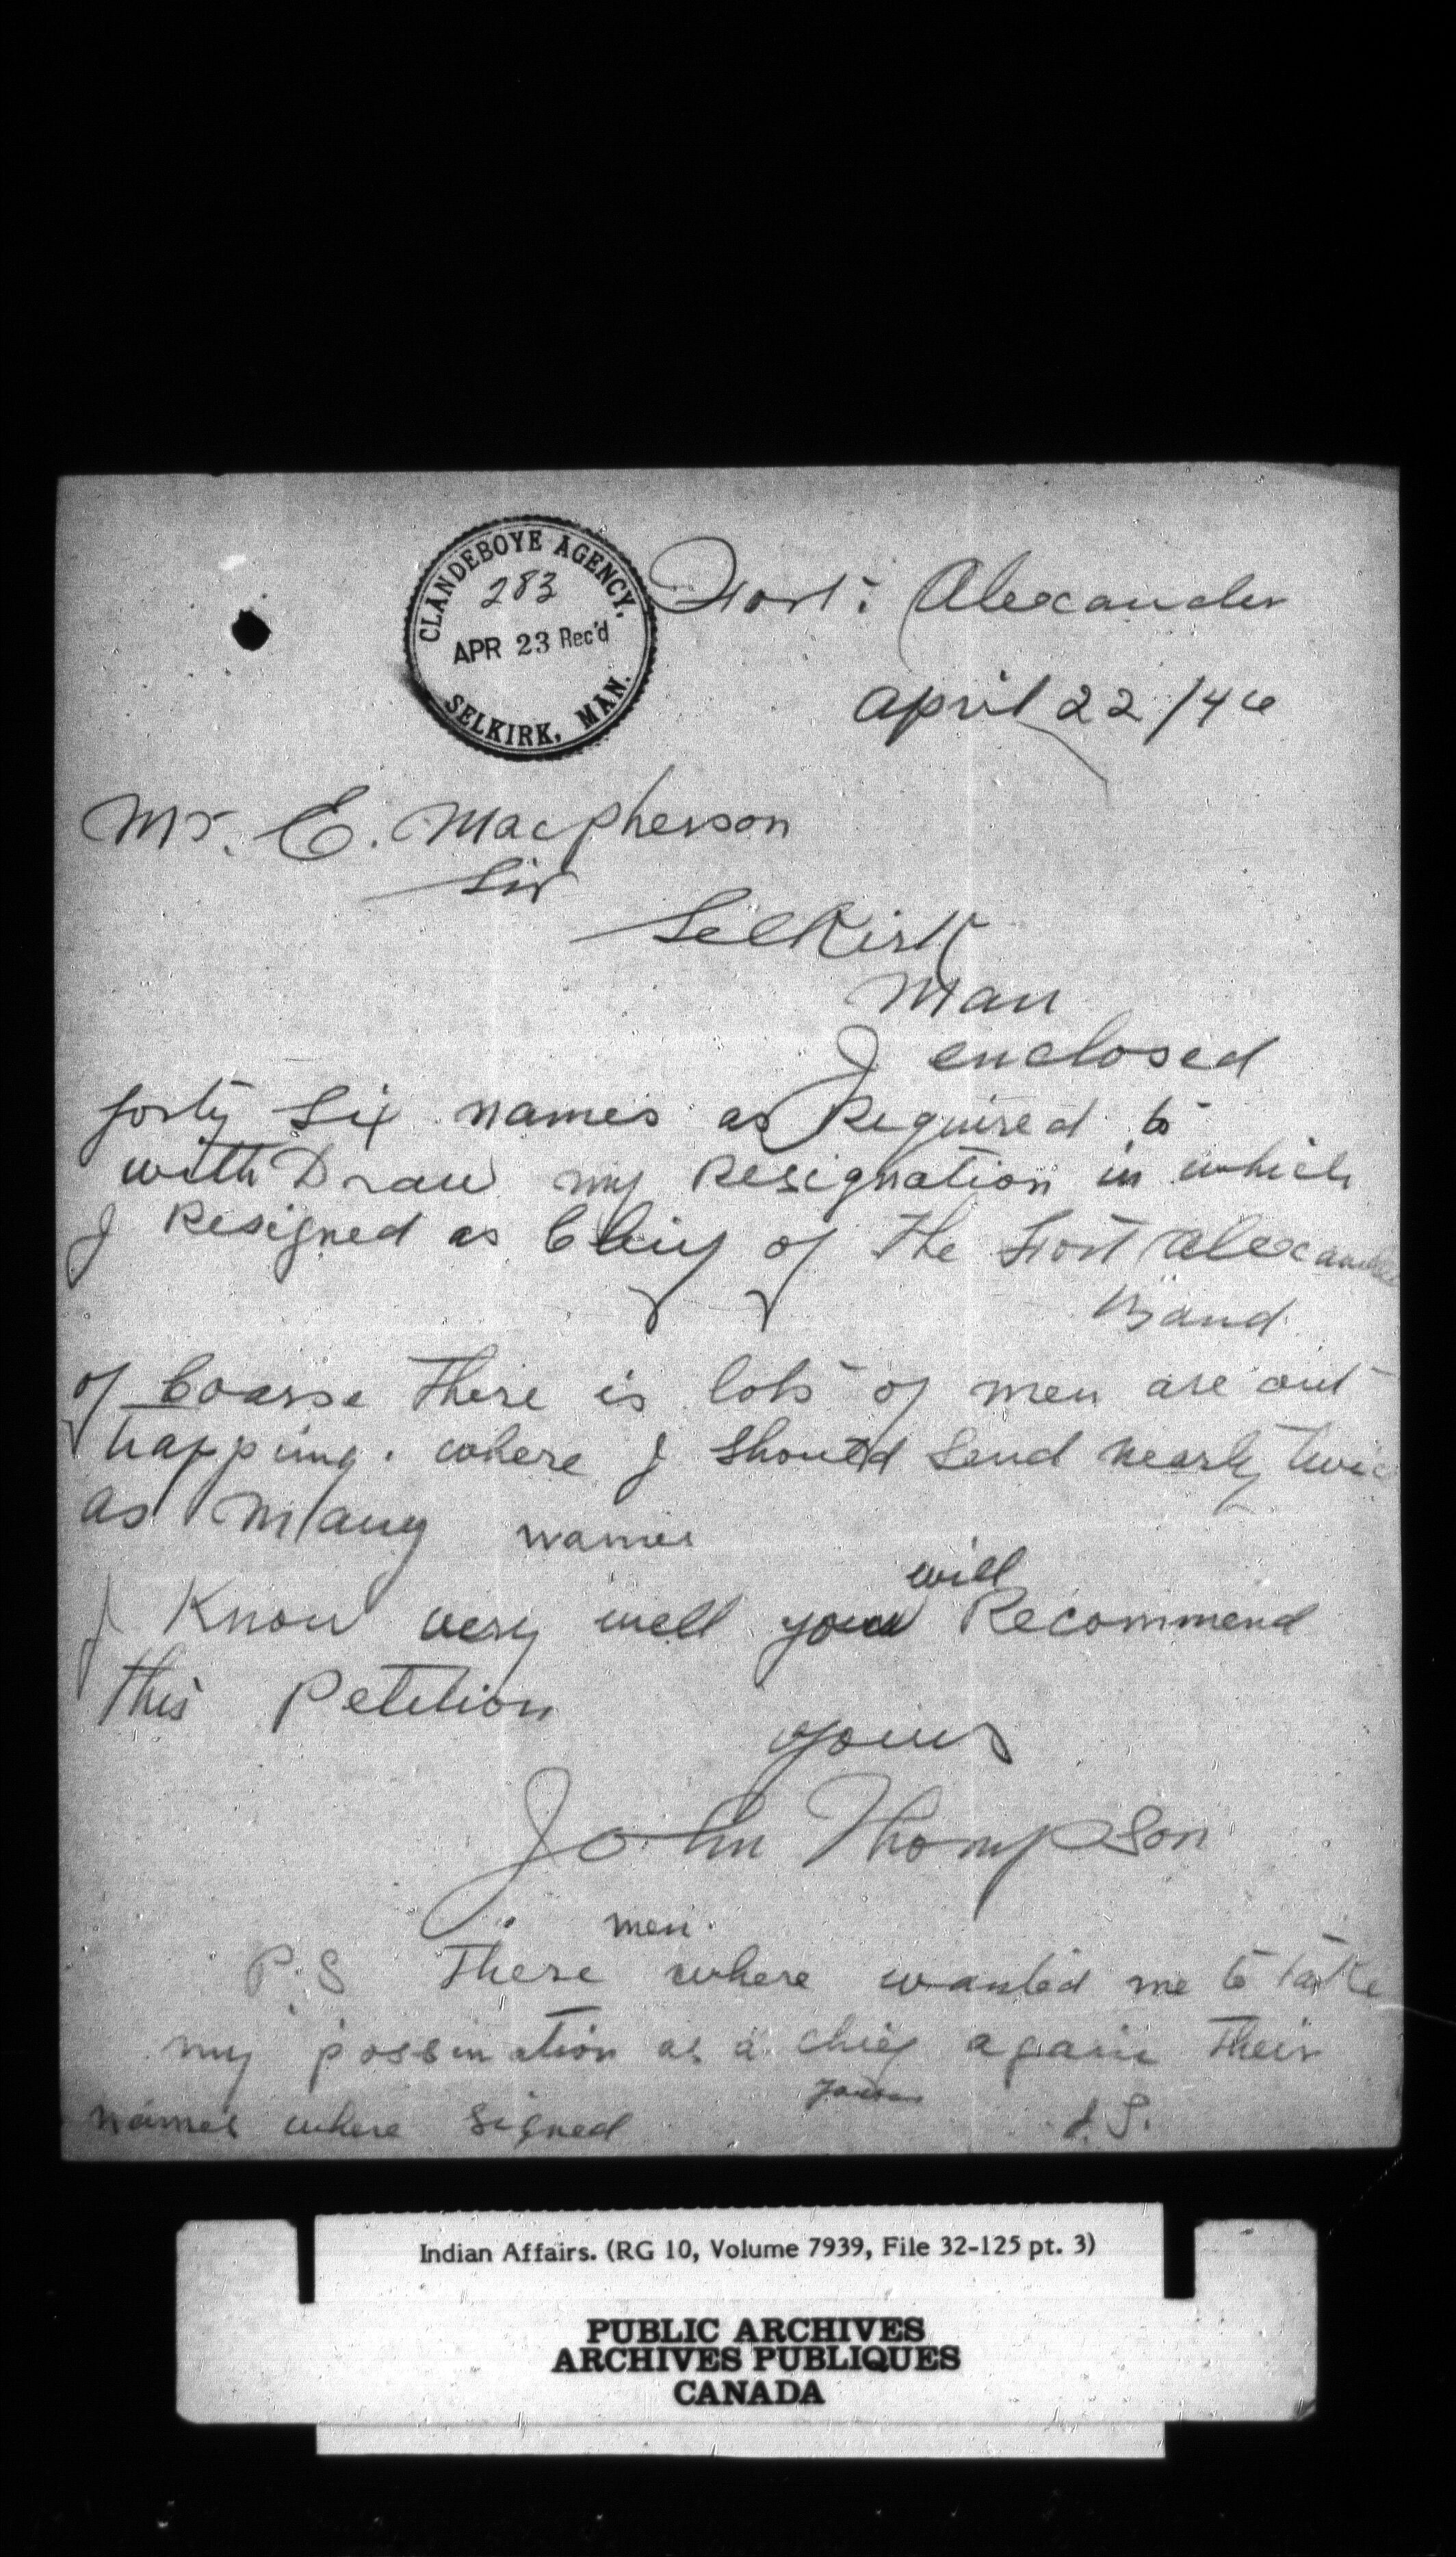 CLANDEBOYE AGENCY,
283
APR 23 Rec'd
SELKIRK, MAN.
Fort. Alexander
April 22/46
Mr. E. Macpherson
Sir
Selkirk
Man
I enclosed
forty Six names as Required to
with Draw my Resignation in which
I Resigned as Chief of The Fort Alexander
Band
of Coarse There is lots of men are out
trapping. where I Should Send nearly twice
as Many names
will
I Know very well you Recommend
This Petition
yours
John Thompson
men
P.S These where wanted me to take
my as a chief again Their
names where signed
yours
J.T.
Indian Affairs. (RG 10, Volume 7939, File 32-125 pt. 3)
PUBLIC ARCHIVES
ARCHIVES PUBLIQUES
CANADA